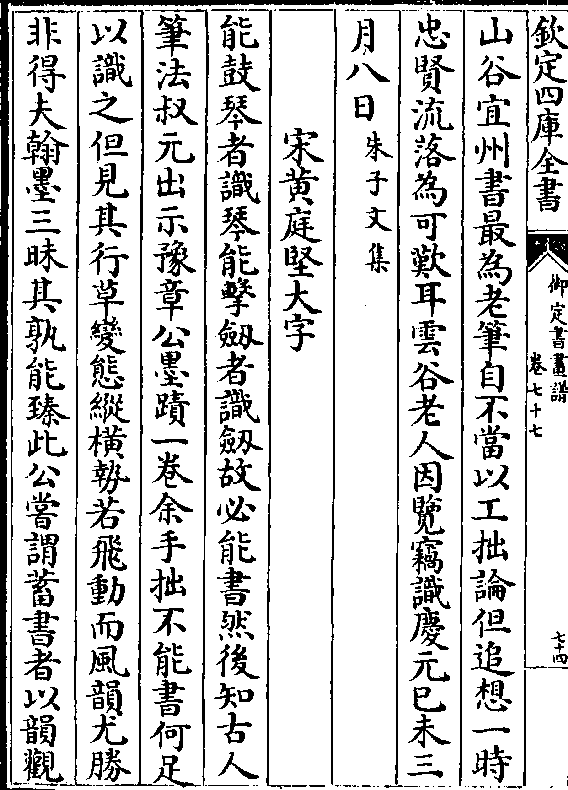 欽定四庫全書
御定書畫譜
卷七十七
七十四
山谷宜州書最為老筆自不當以工拙論但追想一時
忠賢流落為可歎耳雲谷老人因覽竊識慶元已未三
月八日朱子文集
宋黄庭堅大字
能鼓琴者識琴能擊劔者識劔故必能書然後知古人
筆法叔元出示豫章公墨蹟一卷余手拙不能書何足
以識之但見其行草變態縱橫勢若飛動而風韻尤勝
非得夫翰墨三昧其孰能臻此公嘗謂蓄書者以韻觀